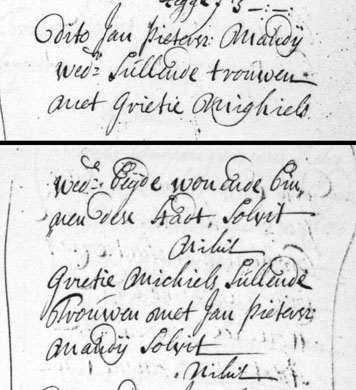 legge f 3 - -
Dito Jan Pietersz: Mandij
wed:r Sullende trouwen
met Grietie Mighiels
wed:e Beijde wonende bin,
nen dese Stadt, Solvit
Nihil
Grietie Michiels, Sullende
Trouwen met Jan Pietersz:
Mandij Solvit
Nihil